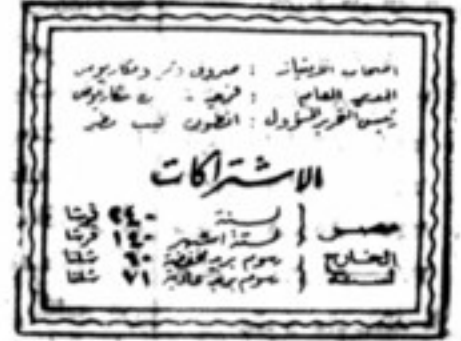 اصحاب الامتياز : صروف ونمر ومكاريوس
المدير العام :
رئيس التحرير المسؤول : انطون نجيب مطر
الاشتراكات
مصر لسنة ٢٤٠ قرشا
لستة اشهر ١٤٠ قرشا
الخارج رسوم بريد مخفضة ٦٠ شلنا
لسنة رسوم بريد عادية ٧١ شلنا